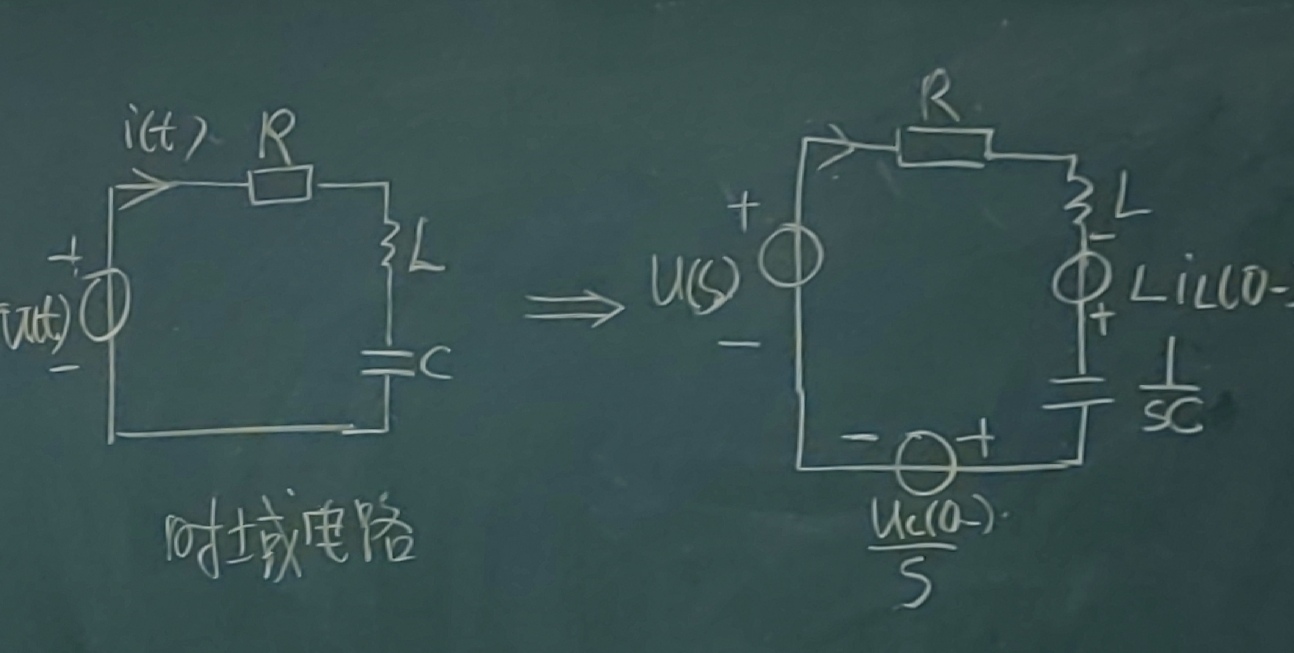 i(t) R
+
u(t)
-
L
C
时域电路
⇒
R
+
U(s)
-
L
-
LiL(0-)
+
1/sC
- +
uc(0-)
S